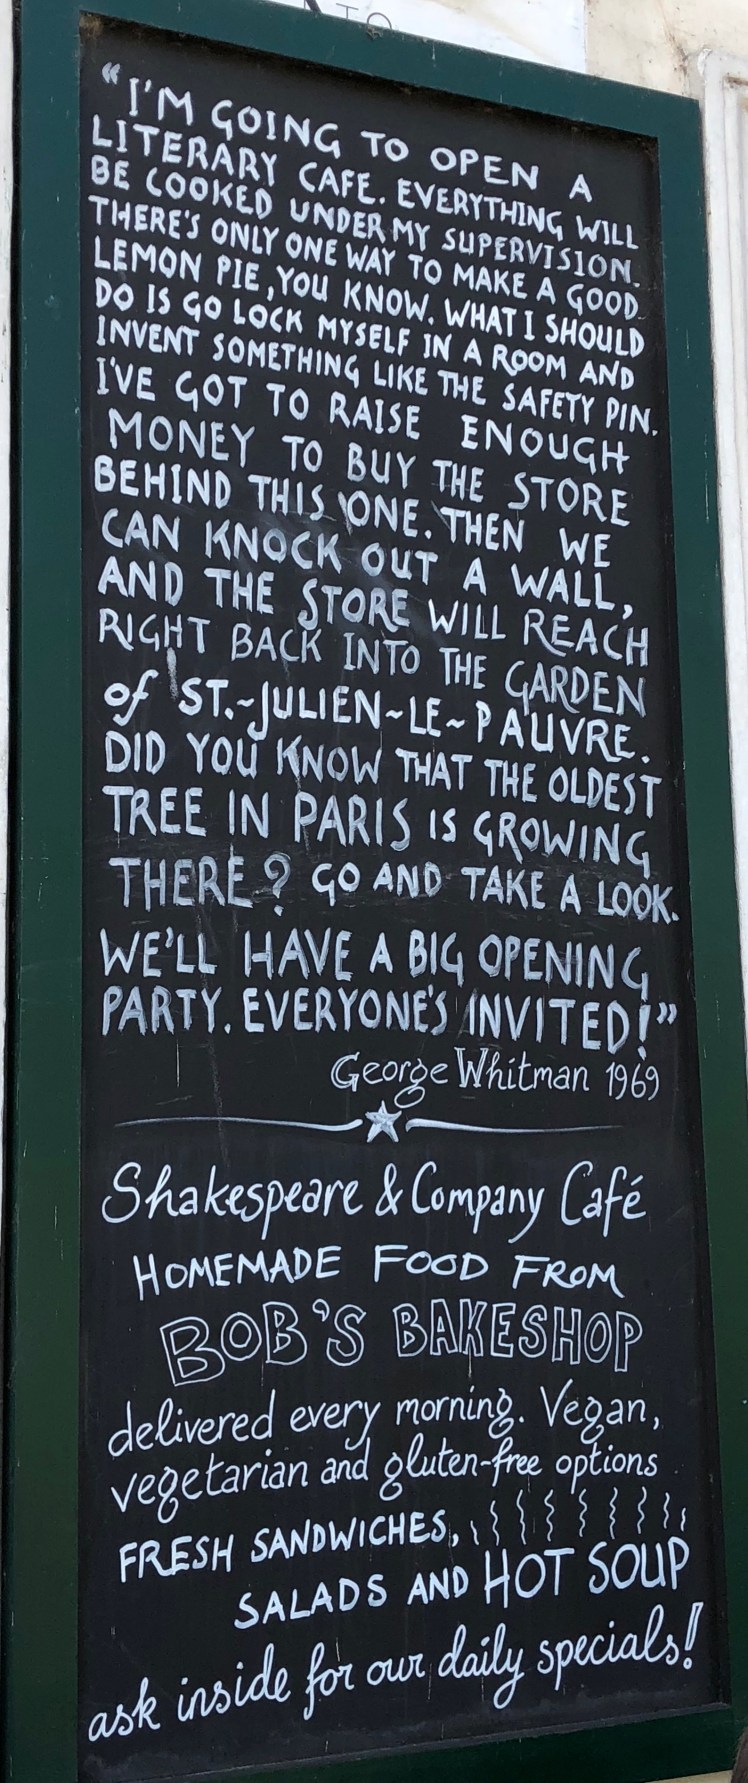 “I'M GOING TO OPEN A
LITERARY CAFE. EVERYTHING WILL
BE COOKED UNDER MY SUPERVISION.
THERE'S ONLY ONE WAY TO MAKE A GOOD
LEMON PIE, YOU KNOW. WHAT I SHOULD
DO IS GO LOCK MYSELF IN A ROOM AND
INVENT SOMETHING LIKE THE SAFETY PIN.
I'VE GOT TO RAISE ENOUGH
MONEY TO BUY THE STORE
BEHIND THIS ONE. THEN WE
CAN KNOCK OUT A WALL,
AND THE STORE WILL REACH
RIGHT BACK INTO THE GARDEN
of ST.~JULIEN~LE~PAUVRE.
DID YOU KNOW THAT THE OLDEST
TREE IN PARIS IS GROWING
THERE? GO AND TAKE A LOOK.
WE'LL HAVE A BIG OPENING
PARTY. EVERYONE'S INVITED!”
George Whitman 1969
Shakespeare & Company Café
HOMEMADE FOOD FROM
BOB'S BAKESHOP
delivered every morning. Vegan,
vegetarian and gluten-free options
FRESH SANDWICHES,
SALADS AND HOT SOUP
ask inside for our daily specials!